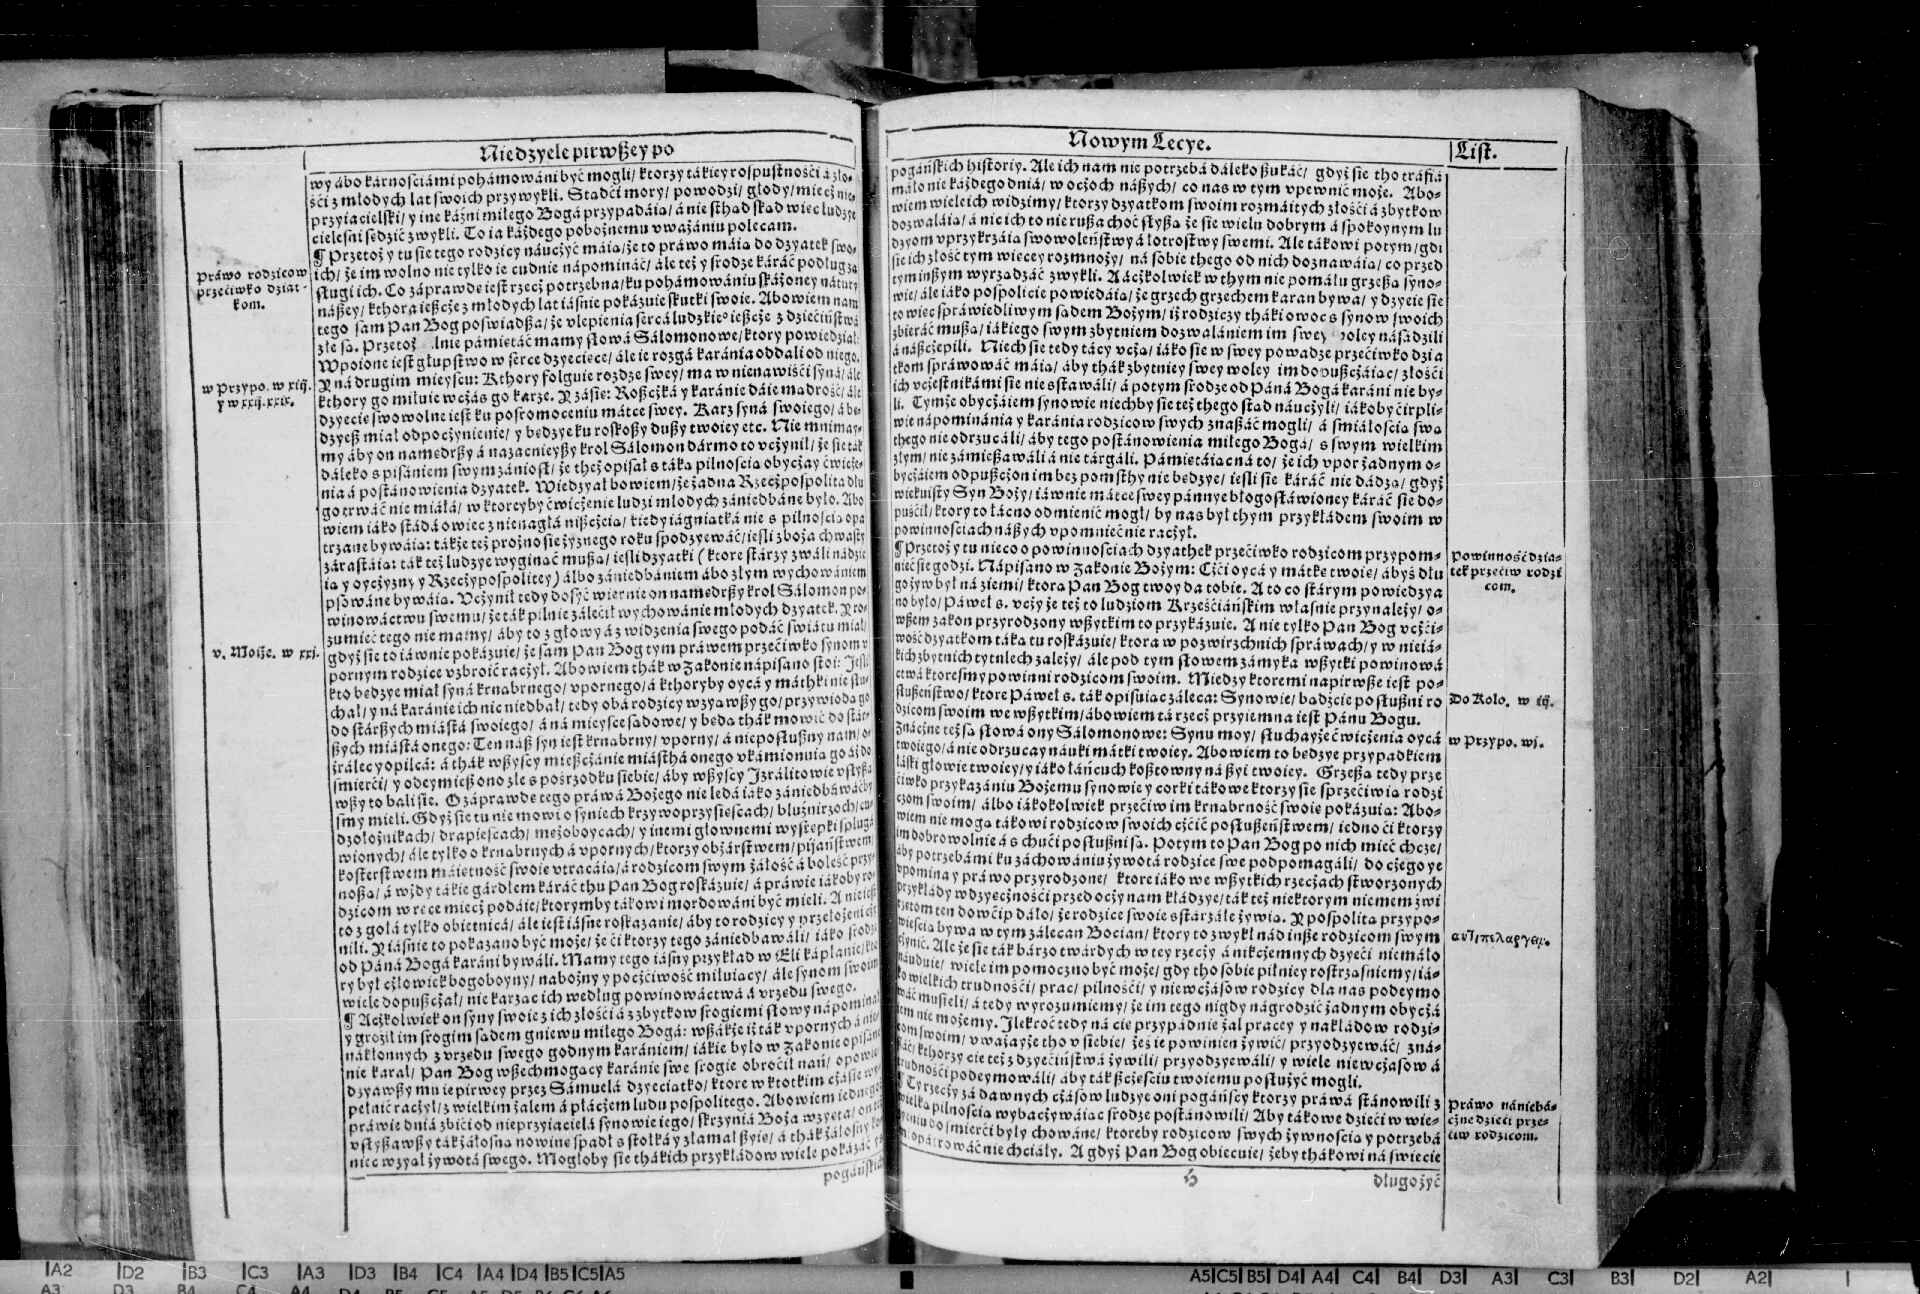 Niedzyele pirwßey po
wy ábo kárnośćiámi pohámowáni być mogli/ ktorzy tákiey rospustnośći á zło-
śći z młodych lat swoich przywykli. Stądći mory/ powodzi/ głody/ miecż nie-
przyiacielski/ y ine káźni miłego Bogá przypadáią/ á nie sthąd skąd wiec ludzye
cielesni sędzić zwykli. To ia káżdego pobożnemu vważániu polecam.
¶ Przetoż y tu sie tego rodzicy náucżyć máią/ że to práwo máią do dzyatek swo-
ich/ że im wolno nie tylko ie cudnie nápomináć/ ále też y srodze káráć podług zá
sługi ich. Co záprawdę iest rzecż potrzebna/ ku pohámowániu skáżoney nátury
nászey/ kthora ießcże z młodych lat iásnie pokázuie skutki swoie. Abowiem nam
tego sam Pan Bog poświadßa/ że vlepienia sercá ludzkieº ießcże z dziećiństwá
złe są. Przetoż pámiętáć mamy słowá Sálomonowe/ ktory powiedział:
Wpoione iest głupstwo w serce dzyecięce/ ále ie rozgá karánia oddali od niego.
Y ná drugim mieyscu: Kthory folguie rozdze swey/ ma w nienawiśći syná/ ále
kthory go miłuie wcżás go karze. Y zásię: Roßcżká y karánie dáie mądrość/ ále
dzyecię swowolne iest ku posromoceniu mátce swey. Karz syná swoiego/ á bę-
dzyeß miał odpocżynienie/ y będzye ku roskoßy dußy twoiey etc. Nie mnimay-
my áby on namędrßy á nazacnieyßy krol Sálomon dármo to vcżynił/ że sie ták
dáleko s pisániem swym zániosł/ że theż opisał s táką pilnością obycżay ćwicże-
nia á postánowienia dzyatek. Wiedzyał bowiem/ że żadna Rzecżpospolita dłu
go trwáć nie miáłá/ w ktoreyby ćwicżenie ludzi młodych zániedbáne było. Abo
wiem iáko stádá owiec z nienagłá nißcżeią/ kiedy iágniątká nie s pilnością opá
trzáne bywáią: tákże też prożno sie żyznego roku spodzyewáć/ iesli zbożá chwásty
zárastáią: ták też ludzye wyginąć mußą/ iesli dzyatki (ktore stárzy zwáli nádzie
ią y oycżyzny y Rzecżypospolitey) álbo zániedbániem ábo złym wychowániem
psowáne bywáią. Vcżynił tedy dosyć wiernie on namędrßy krol Sálomon po-
winowáctwu swemu/ że ták pilnie zálecił wychowánie młodych dzyatek. Y ro-
zumieć tego nie mamy/ áby to z głowy á z widzenia swego podáć świátu miał/
gdyż sie to iáwnie pokázuie/ że sam Pan Bog tym práwem przećiwko synom v
pornym rodzice vzbroić racżył. Abowiem thák w Zakonie nápisano stoi: Iesli
kto będzye miał syná krnąbrnego/ vpornego/ á kthoryby oycá y máthki nie słu-
chał/ y ná karánie ich nic niedbał/ tedy obá rodzicy wzyawßy go/ przywiodą go
do stárßych miástá swoiego/ á ná mieysce sądowe/ y będą thák mowić do stár-
ßych miástá onego: Ten náß syn iest krnąbrny/ vporny/ á nieposłußny nam/ o-
żrálec y opilcá: á thák wßyscy mießcżánie miásthá onego vkámionuią go áż do
śmierći/ y odeymieß ono złe s pośrzodku siebie/ áby wßyscy Izrálitowie vsłyßa
wßy to báli sie. O záprawdę tego práwá Bożego nie ledá iáko zániedbáwáćby
smy mieli. Gdyż sie tu nie mowi o syniech krzywoprzysięscách/ bluźnirzoch/ cu-
dzołożnikach/ drapieścach/ mężoboycach/ y inemi głownemi występki splugá
wionych/ ále tylko o krnąbrnych á vpornych/ ktorzy obżárstwem/ piiáństwem
kosterstwem máiętność swoię vtracáią/ á rodzicom swym żáłość á boleść przy-
noßą/ á wżdy tákie gárdłem káráć thu Pan Bog roskázuie/ á práwie iákoby ro-
dzicom w ręce miecż podáie/ ktorymby tákowi mordowáni być mieli. A nie iest
to z gołá tylko obietnicá/ ále iest iásne roskazánie/ áby to rodzicy y przełożeni cży
nili. Y iáśnie to pokazano być może/ że ći ktorzy tego zániedbawáli/ iáko srodze
od Páná Bogá karáni bywáli. Mamy tego iásny przykład w Eli kápłanie/ kto
ry był cżłowiek bogoboyny/ nabożny y pocżćiwość miłuiący/ ále synom swoim
wiele dopußcżał/ nie karząc ich według powinowáctwá á vrzędu swego.
¶ Acżkolwiek on syny swoie z ich złośći á z zbytkow srogiemi słowy nápominał
y groził im srogim sądem gniewu miłego Bogá: wßákże iż ták vpornych á nie
nákłonnych z vrzędu swego godnym karániem/ iákie było w Zakonie opisáne
nie karał/ Pan Bog wßechmogący karánie swe srogie obroćił nań/ opowie-
dzyawßy mu ie pirwey przez Sámuelá dzyeciątko/ ktore w krotkim cżásie wy
pełnić racżył/ z wielkim żalem á płácżem ludu pospolitego. Abowiem iednego
práwie dniá zbići od nieprzyiacielá synowie iego/ skrzyniá Boża wzyęta/ on też
vsłyßawßy ták żáłosną nowinę spadł s stołká y złamał ßyię/ á thák żáłosny ko-
niec wzyął żywotá swego. Mogłoby sie thákich przykłádow wiele pokázáć z
pogáńskich
Práwo rodzicow
przećiwko dziat-
kom.
w Przypo. w xiij.
y w xxij. xxix.
v. Moiże. w xxj.
Nowym Lecye.
List.
pogáńskich historiy. Ale ich nam nie potrzebá dáleko ßukáć/ gdyż sie tho tráfia
máło nie káżdego dniá/ w ocżoch nászych/ co nas w tym vpewnić może. Abo-
wiem wiele ich widzimy/ ktorzy dzyatkom swoim rozmáitych złośći á zbytkow
dozwaláią/ á nic ich to nie rußa choć słyßą że sie wielu dobrym á spokoynym lu
dzyom vprzykrzáią swowoleństwy á łotrostwy swemi. Ale tákowi potym/ gdi
sie ich złość tym więcey rozmnoży/ ná sobie thego od nich doznawáią/ co przed
tym inßym wyrządzáć zwykli. A ácżkolwiek w thym nie pomáłu grzeßą syno-
wie/ ále iáko pospolicie powiedáią/ że grzech grzechem karan bywa/ y dzyeie sie
to wiec spráwiedliwym sądem Bożym/ iż rodziczy tháki owoc s synow swoich
zbieráć mußą/ iákiego swym zbytniem dozwalániem im swey woley násádzili
á náßcżepili. Niech sie tedy tácy vcżą/ iáko sie w swey powadze przećiwko dzia
tkom spráwowáć máią/ áby thák zbytniey swey woley im dopußcżáiąc/ złośći
ich vcżestnikámi sie nie sstawáli/ á potym srodze od Páná Bogá karáni nie by-
li. Tymże obycżáiem synowie niechby sie też thego stąd náucżyli/ iákoby ćirpli-
wie nápominánia y karánia rodzicow swych znaßáć mogli/ á śmiáłością swą
thego nie odrzucáli/ áby tego postánowienia miłego Bogá/ s swym wielkim
złym/ nie zámießawáli á nie tárgáli. Pámiętáiąc ná to/ że ich vpor żadnym o-
bycżáiem odpußcżon im bez pomsthy nie będzye/ iesli sie káráć nie dádzą/ gdyż
wiekuisty Syn Boży/ iáwnie mátce swey pánnye błogosłáwioney káráć sie do-
puśćił/ ktory to łácno odmienić mogł/ by nas był thym przykłádem swoim w
powinnościach nászych vpomnieć nie racżył.
¶ Przetoż y tu nieco o powinnościach dzyathek przećiwko rodzicom przypom-
nieć sie godzi. Nápisano w Zakonie Bożym: Cżći oycá y mátkę twoię/ ábyś dłu
go żyw był ná ziemi/ ktorą Pan Bog twoy da tobie. A to co stárym powiedzyá
no było/ Páweł s. vcży że też to ludziom Krześćiáńskim własnie przynależy/ o-
wßem zakon przyrodzony wßytkim to przykázuie. A nie tylko Pan Bog vcżći-
wość dzyatkom táką tu roskázuie/ ktora w pozwirzchnich spráwach/ y w nieiá-
kich zbytnich tytulech zależy/ ále pod tym słowem zámyka wßytki powinowá
ctwá ktoresmy powinni rodzicom swoim. Między ktoremi napirwße iest po-
słußeństwo/ ktore Páweł s. ták opisuiąc záleca: Synowie/ bądźcie posłußni ro
dzicom swoim we wßytkim/ ábowiem tá rzecż przyiemna iest Pánu Bogu.
Znácżne też są słowá ony Sálomonowe: Synu moy/ słuchayże ćwicżenia oycá
twoiego/ á nie odrzucay náuki mátki twoiey. Abowiem to będzye przypadkiem
łáski głowie twoiey/ y iáko łáńcuch koßtowny ná ßyi twoiey. Grzeßą tedy prze
ćiwko przykazániu Bożemu synowie y corki tákowe ktorzy sie sprzećiwią rodzi
cżom swoim/ álbo iákokolwiek przećiw im krnąbrność swoię pokázuią: Abo-
wiem nie mogą tákowi rodzicow swoich cżćić posłußeństwem/ iedno ći ktorzy
im dobrowolnie á s chući posłußni są. Potym to Pan Bog po nich mieć chce/
áby potrzebámi ku záchowániu żywotá rodzice swe podpomagáli/ do cżego ye
vpomina y práwo przyrodzone/ ktore iáko we wßytkich rzecżach stworzonych
przykłády wdzyecżnośći przed ocży nam kłádzye/ ták też niektorym niemem zwi
rzętom ten dowćip dáło/ że rodzice swoie s stárzáłe żywią. Y pospolitą przypo-
wieścią bywa w tym zálecan Bocian/ ktory to zwykł nád inße rodzicom swym
cżynić. Ale że sie ták bárzo twárdych w tey rzecży á nikcżemnych dzyeći niemáło
náyduie/ wiele im pomoczno być może/ gdy tho sobie pilniey rostrząśniemy/ iá-
ko wielkich trudnośći/ prac/ pilnośći/ y niewcżásow rodzicy dla nas podeymo
wáć musieli/ á tedy wyrozumiemy/ że im tego nigdy nágrodzić żadnym obycżá
iem nie możemy. Ilekroć tedy ná cię przypádnie żal pracey y nakłádow rodzi-
com swoim/ vważayże tho v siebie/ żeś ie powinien żywić/ przyodzyewáć/ zná-
ßáć/ kthorzy cię też z dzyećiństwá żywili/ przyodzyewáli/ y wiele niewcżásow á
trudnośći podeymowáli/ áby ták ßcżęściu twoiemu posłużyć mogli.
¶ Ty rzecży zá dawnych cżásow ludzye oni pogáńscy ktorzy práwá stánowili z
wielką pilnością wybacżywáiąc srodze postánowili/ Aby tákowe dzieći w wię-
zieniu do śmierći były chowáne/ ktoreby rodzicow swych żywnością y potrzebą
opátrowáć nie chciáły. A gdyż Pan Bog obiecuie/ żeby thákowi ná świecie
H
długo żyć
Powinność dzia-
tek przećiw rodzi
com.
Do Kolo. w iij.
w Przypo. wj.
ἀντιπελαργεῖν.
Práwo ná niebá-
cżne dzieći prze-
ćiw rodzicom.